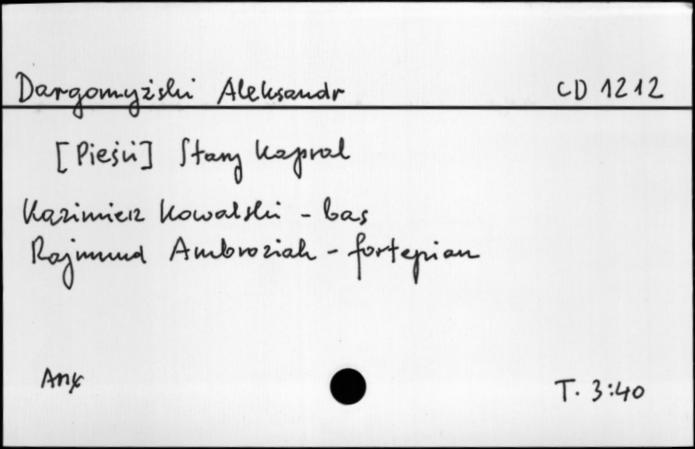 Dargomyżski Aleksandr CD 1212
[Pieśni] Stary kapral
Kazimierz Kowalski - bas
Rajmund Ambroziak - fortepian
T. 3:40